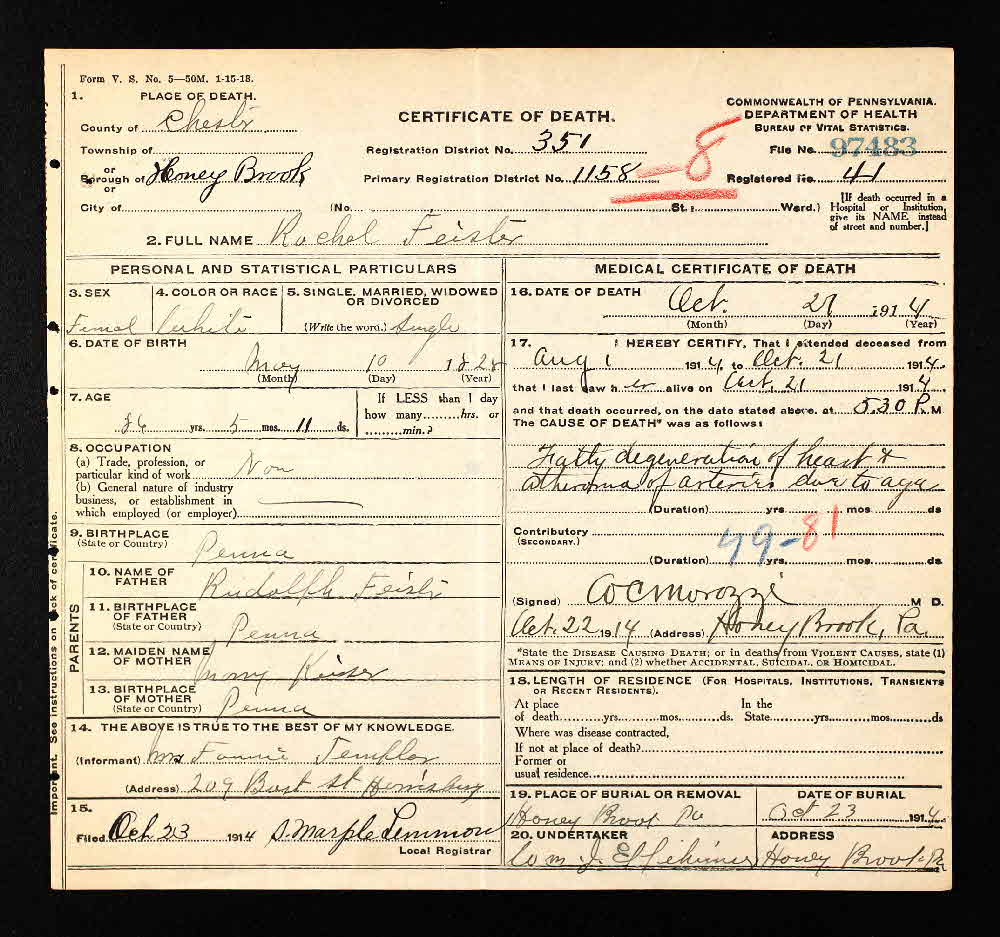 Form V. S. No. 5—50M. 1-15-13.
1. PLACE OF DEATH.
County of Chester
Township of
or
Borough of Honey Brook
or
City of
CERTIFICATE OF DEATH.
Registration District No. 351
Primary Registration District No. 1158 —8
(No. St.; Ward.)
COMMONWEALTH OF PENNSYLVANIA.
DEPARTMENT OF HEALTH
BUREAU OF VITAL STATISTICS.
File No. 97483
Registered No. 41
[If death occurred in a
Hospital or Institution,
give its NAME instead
of street and number.]
2. FULL NAME Rachel Feister
PERSONAL AND STATISTICAL PARTICULARS
3. SEX
Femal
4. COLOR OR RACE
White
5. SINGLE, MARRIED, WIDOWED
OR DIVORCED
(Write the word.) Single
6. DATE OF BIRTH
May 10 1828
(Month) (Day) (Year)
7. AGE
86 yrs. 5 mos. 11 ds.
If LESS than 1 day
how many hrs. or
min.?
8. OCCUPATION
(a) Trade, profession, or
particular kind of work Non
(b) General nature of industry
business, or establishment in
which employed (or employer)
9. BIRTHPLACE
(State or Country) Penna
PARENTS
10. NAME OF
FATHER Rudolph Feister
11. BIRTHPLACE
OF FATHER
(State or Country) Penna
12. MAIDEN NAME
OF MOTHER Mary
13. BIRTHPLACE
OF MOTHER
(State or Country) Penna
14. THE ABOVE IS TRUE TO THE BEST OF MY KNOWLEDGE.
(Informant) Mrs Fannie Templar
(Address) 209 st Harrisburg
15.
Filed Oct 23 1914 S. Marple Lemmon
Local Registrar
MEDICAL CERTIFICATE OF DEATH
16. DATE OF DEATH
Oct. 21 1914
(Month) (Day) (Year)
17. I HEREBY CERTIFY, That I attended deceased from
Aug 1 1914, to Oct. 21 1914.
that I last saw her alive on Oct. 21 1914
and that death occurred, on the date stated above, at 5.30 P. M
The CAUSE OF DEATH* was as follows:
Fatty degeneration of heart &
atheroma of arteries due to age
(Duration) yrs mos. ds
Contributory
(SECONDARY.)
79-81
(Duration) yrs. mos. ds.
(Signed) M D.
Oct. 22 1914 (Address) Honey Brook, Pa.
*State the DISEASE CAUSING DEATH; or in deaths from VIOLENT CAUSES, state (1)
MEANS OF INJURY; and (2) whether ACCIDENTAL, SUICIDAL, OR HOMICIDAL.
18. LENGTH OF RESIDENCE (FOR HOSPITALS, INSTITUTIONS, TRANSIENTS
OR RECENT RESIDENTS).
At place In the
of death yrs mos. ds. State yrs. mos. ds
Where was disease contracted,
If not at place of death?
Former or
usual residence
19. PLACE OF BURIAL OR REMOVAL
Honey Brook Pa
DATE OF BURIAL
Oct 23 1914
20. UNDERTAKER
Wm J
ADDRESS
Honey Brook Pa
Important. See instructions on back of certificate.